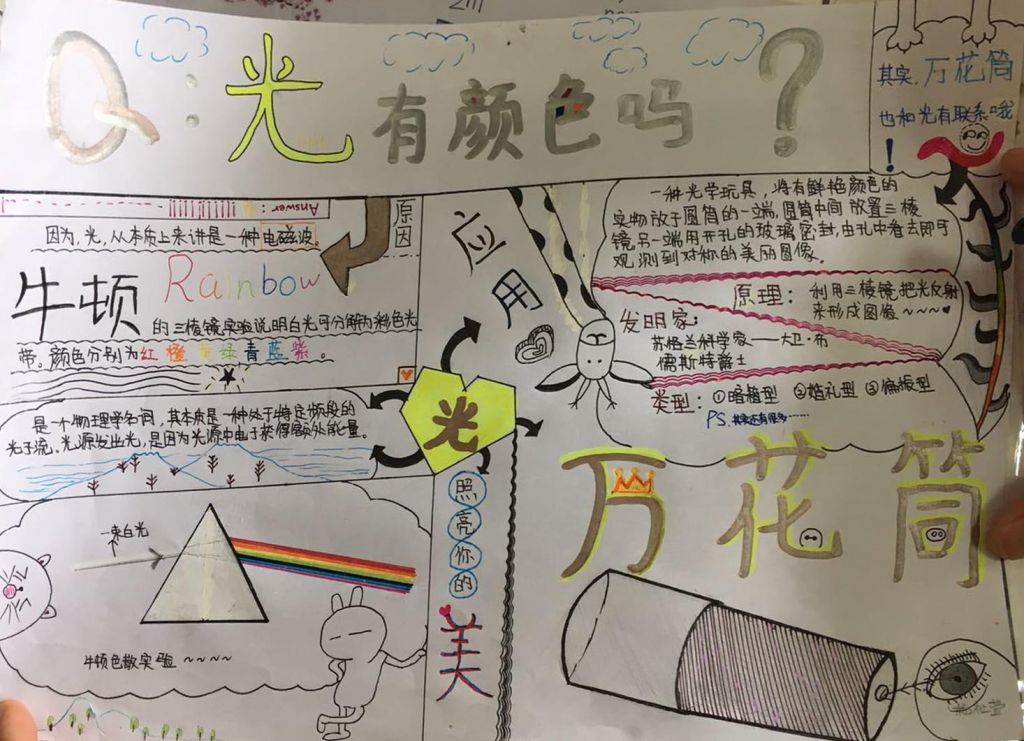 Q：光有颜色吗？
其实，万花筒
也和光有联系哦
!
Answer：
原因
因为，光，从本质上来讲是一种电磁波。
牛顿 Rainbow
的三棱镜实验说明白光可分解为彩色光
带。颜色分别为红橙黄绿青蓝紫。
是一个物理学名词，其本质是一种处于特定频段的
光子流。光源发出光，是因为光源中电子获得额外能量。
一束白光
牛顿色散实验~~~~
光
照亮你的
美
应用
一种光学玩具，将有鲜艳颜色的
实物放于圆筒的一端，圆筒中间放置三棱
镜，另一端用开孔的玻璃密封，由孔中看去即可
观测到对称的美丽图像。
原理：利用三棱镜把光反射
来形成图像~~~~
发明家：
苏格兰科学家——大卫·布
儒斯特爵士
类型：①暗箱型 ②婚礼型 ③偏振型
PS.其实还有很多……
万花筒